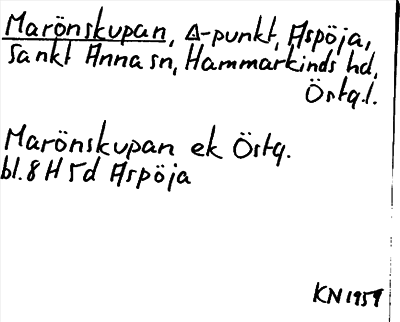 Marönskupan, Δ-punkt, Aspöja,
Sankt Anna sn, Hammarkinds hd,
Östg.l.
Marönskupan ek Östg.
bl. 8 H 5 d Aspöja
KN 1959